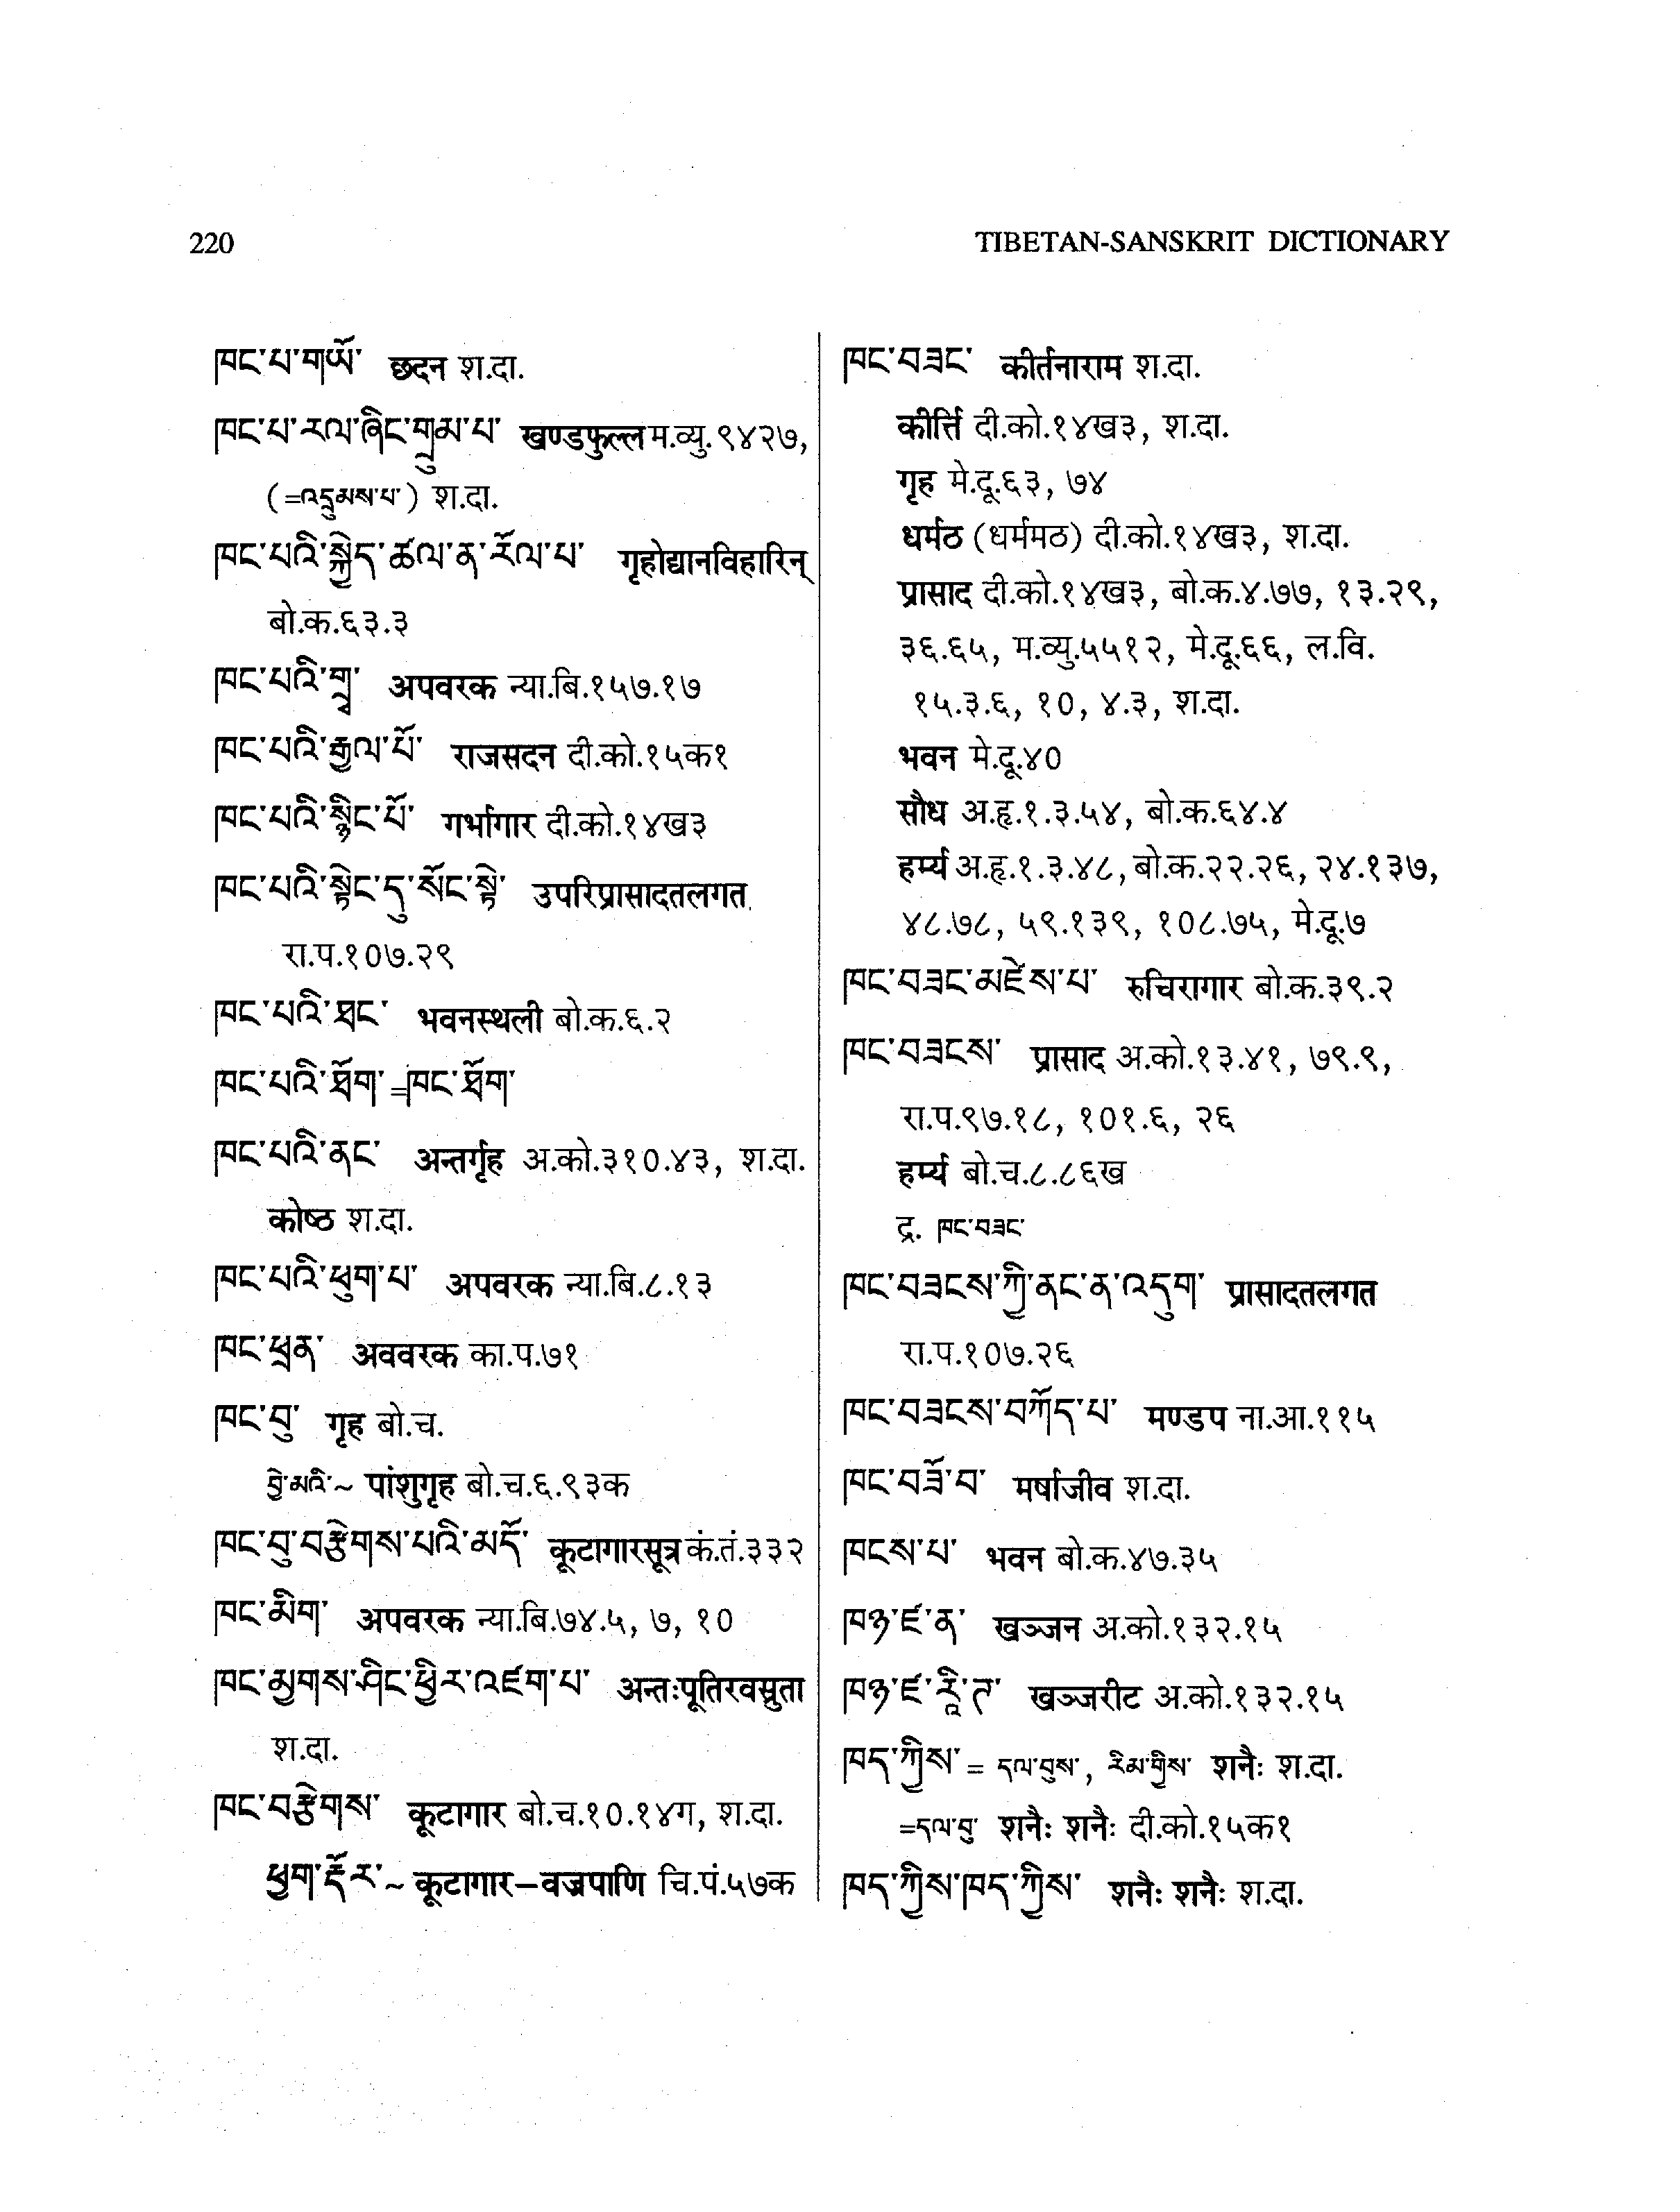 220
TIBETAN-SANSKRIT DICTIONARY
ཁང་པ་གཡོ་ छदन श.दा.
ཁང་པ་རལ་ཞིང་གྲུམ་པ་ खण्डफुल्ल म.व्यु.९४२७,
(=འདྲུམས་པ་) श.दा.
ཁང་པའི་སྐྱེད་ཚལ་ན་རོལ་པ་ गृहोद्यानविहारिन्
बो.क.६३.३
ཁང་པའི་གྲྭ་ अपवरक न्या.बि.१५७.१७
ཁང་པའི་རྒྱལ་པོ་ राजसदन दी.को.१५क१
ཁང་པའི་སྙིང་པོ་ गर्भागार दी.को.१४ख३
ཁང་པའི་སྟེང་དུ་སོང་སྟེ་ उपरिप्रासादतलगत
रा.प.१०७.२९
ཁང་པའི་ཐང་ भवनस्थली बो.क.६.२
ཁང་པའི་ཐོག་=ཁང་ཐོག་
ཁང་པའི་ནང་ अन्तर्गृह अ.को.३१०.४३, श.दा.
कोष्ठ श.दा.
ཁང་པའི་ཕུག་པ་ अपवरक न्या.बि.८.१३
ཁང་ཕྲན་ अववरक का.प.७१
ཁང་བུ་ गृह बो.च.
བྱེ་མའི་~ पांशुगृह बो.च.६.९३क
ཁང་བུ་བརྩེགས་པའི་མདོ་ कूटागारसूत्र कं.तं.३३२
ཁང་མིག་ अपवरक न्या.बि.७४.५, ७, १०
ཁང་མྱགས་ཤིང་ཕྱིར་འཛག་པ་ अन्तःपूतिरवस्रुता
श.दा.
ཁང་བརྩེགས་ कूटागार बो.च.१०.१४ग, श.दा.
ཕྱག་རྡོར་~ कूटागार–वज्रपाणि चि.पं.५७क
ཁང་བཟང་ कीर्तनाराम श.दा.
कीर्त्ति दी.को.१४ख३, श.दा.
गृह मे.दू.६३, ७४
धर्मठ (धर्ममठ) दी.को.१४ख३, श.दा.
प्रासाद दी.को.१४ख३, बो.क.४.७७, १३.२९,
३६.६५, म.व्यु.५५१२, मे.दू.६६, ल.वि.
१५.३.६, १०, ४.३, श.दा.
भवन मे.दू.४०
सौध अ.हृ.१.३.५४, बो.क.६४.४
हर्म्य अ.हृ.१.३.४८, बो.क.२२.२६, २४.१३७,
४८.७८, ५९.१३९, १०८.७५, मे.दू.७
ཁང་བཟང་མཛེས་པ་ रुचिरागार बो.क.३९.२
ཁང་བཟངས་ प्रासाद अ.को.१३.४१, ७९.९,
रा.प.९७.१८, १०१.६, २६
हर्म्य बो.च.८.८६ख
द्र. ཁང་བཟང་
ཁང་བཟངས་ཀྱི་ནང་ན་འདུག་ प्रासादतलगत
रा.प.१०७.२६
ཁང་བཟངས་བཀོད་པ་ मण्डप ना.आ.११५
ཁང་བཟོ་བ་ मर्षाजीव श.दा.
ཁངས་པ་ भवन बो.क.४७.३५
ཁཉ་ཛ་ན་ खञ्जन अ.को.१३२.१५
ཁཉ་ཛ་རཱི་ཊ་ खञ्जरीट अ.को.१३२.१५
ཁད་ཀྱིས་ = དལ་བུས་, རིམ་གྱིས་ शनैः श.दा.
=དལ་བུ་ शनैः शनैः दी.को.१५क१
ཁད་ཀྱིས་ཁད་ཀྱིས་ शनैः शनैः श.दा.